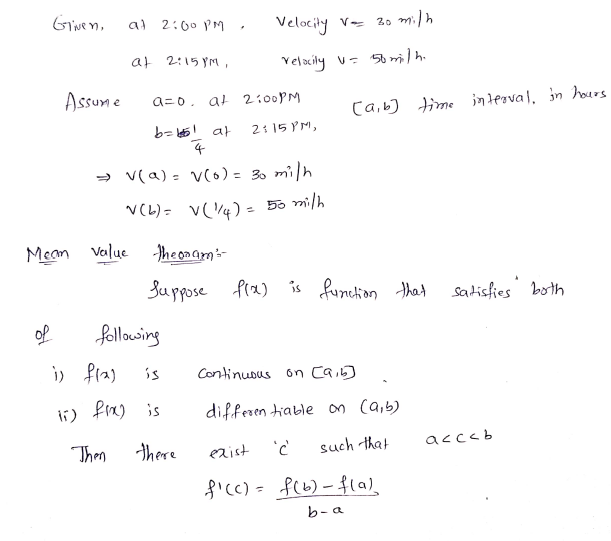 Given, at 2:00 PM . Velocity v= 30 mi/h
at 2:15 PM, velocity v= 50 mi/h.
Assume a=0. at 2:00PM [a,b] time interval, in hours
b= 1/4 at 2:15 PM,
⇒ v(a) = v(0) = 30 mi/h
v(b) = v(1/4) = 50 mi/h
Mean value theoram:-
Suppose f(x) is function that satisfies both
of following
i) f(x) is continuous on [a,b]
ii) f(x) is differentiable on (a,b)
Then there exist 'c' such that a<c<b
f'(c) = f(b) - f(a) / b-a